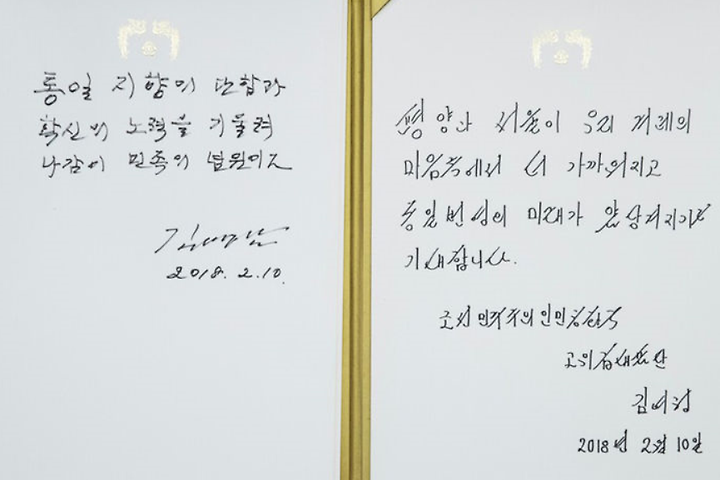 통일 지향의 단합과
확신의 노력을 기울려
나감이 민족의 념원이오
김영남
2018. 2. 10.
평양과 서울이 우리 겨레의
마음속에서 더 가까워지고
통일번영의 미래가 앞당겨지기를
기대합니다.
조선민주주의인민공화국
고위급대표단
김여정
2018년 2월 10일